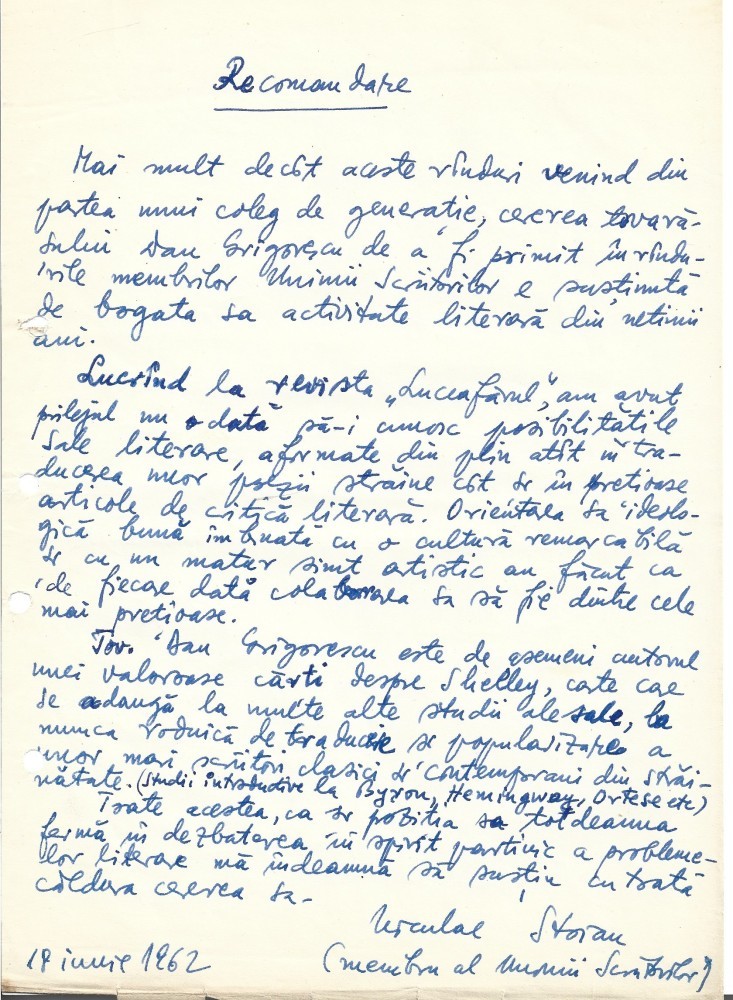 Recomandare
Mai mult decît aceste rînduri venind din
partea unui coleg de generatie, cererea tovară-
sului Dan Grigorescu de a fi primit în rîndu-
rile membrilor Uniunii Scriitorilor e sustinută
de bogata sa activitate literară din ultimii
ani.
Lucrînd la revista „Luceafărul", am avut
prilejul nu odată să-i cunosc posibilitățile
sale literare, afirmate din plin atît în tra-
ducerea unor poezii străine cît si în pretioase
articole de critică literară. Orientarea sa ideolo-
gică bună îmbinată cu o cultură remarcabilă
si cu un matur simt artistic au făcut ca
de fiecare dată colaborarea sa să fie dintre cele
mai pretioase.
Tov. Dan Grigorescu este de asemeni autorul
unei valoroase cărti despre Shelley, carte care
se adaugă la multe alte studii ale sale, la
munca rodnică de traducere si popularizare a
unor mari scriitori clasici si contemporani din străi-
nătate. (Studii introductive la Byron, Hemingway, Ortese etc)
Toate acestea, ca si pozitia sa totdeauna
fermă în dezbaterea în spirit partinic a probleme-
lor literare mă îndeamnă să sustin cu toată
căldura cererea sa.
Niculae Stoian
(membru al Uniunii Scriitorilor)
18 iunie 1962